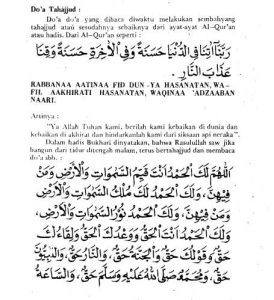 Do'a Tahajjud :
Do'a do'a yang dibaca diwaktu melakukan sembahyang
tahajjud atau sesudahnya sebaiknya dari ayat-ayat Al-Qur'an
atau hadis. Dari Al-Qur'an seperti :
رَبَّنَا آتِنَا فِى الدُّنْيَا حَسَنَةً وَفِى الْآخِرَةِ حَسَنَةً وَقِنَا
عَذَابَ النَّارِ.
RABBANAA AATINAA FID DUN -YA HASANATAN, WA-
FIL AAKHIRATI HASANATAN, WAQINAA 'ADZAABAN
NAARI.
Artinya :
"Ya Allah Tuhan kami, berilah kami kebaikan di dunia dan
kebaikan di akhirat dan hindarkanlah kami dari siksaan api neraka".
Dalam hadis Bukhari dinyatakan, bahwa Rasulullah saw jika
bangun dari tidur ditengah malam, terus bertahajjud dan membaca
do'a abh. :
اَللّٰهُمَّ لَكَ الْحَمْدُ اَنْتَ قَيِّمُ السَّمٰوَاتِ وَالْاَرْضِ وَمَنْ
فِيْهِنَّ، وَلَكَ الْحَمْدُ لَكَ مُلْكُ السَّمٰوَاتِ وَالْاَرْضِ وَمَنْ
فِيْهِنَّ، وَلَكَ الْحَمْدُ نُوْرُ السَّمٰوَاتِ وَالْاَرْضِ،
وَلَكَ الْحَمْدُ اَنْتَ الْحَقُّ وَوَعْدُكَ حَقٌّ وَلِقَاءُكَ
حَقٌّ وَقَوْلُكَ حَقٌّ وَالْجَنَّةُ حَقٌّ، وَالنَّارُ حَقٌّ، وَالنَّبِيُّوْنَ
حَقٌّ، وَمُحَمَّدٌ صَلَّى اللهُ عَلَيْهِ وَسَلَّمَ حَقٌّ، وَالسَّاعَةُ